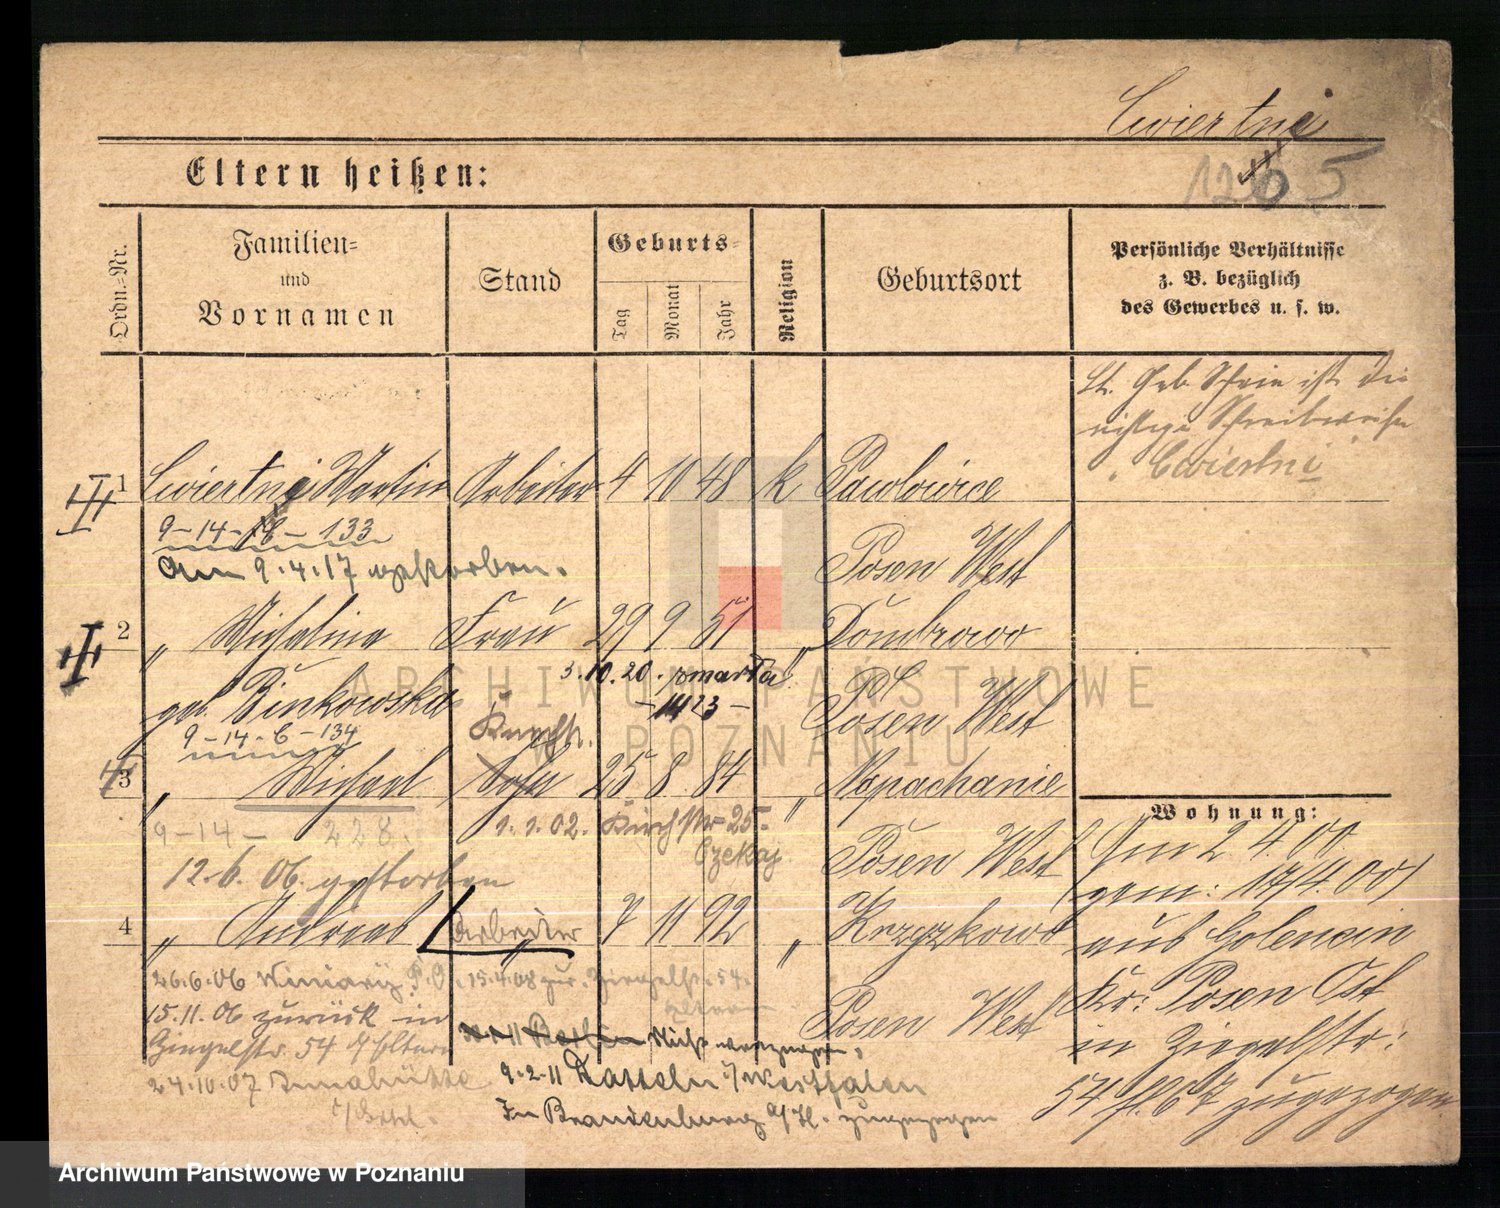 Cwiertni
1265
Eltern heißen:
Ordn.-Nr.
Familien-
und
Vornamen
Stand
Geburts-
Tag
Monat
Jahr
Religion
Geburtsort
Persönliche Verhältnisse
z. B. bezüglich
des Gewerbes u. s. w.
Lt. Geb. Schein ist die
richtige Schreibweise
Cwiertni
1 Cwiertni Martin Arbeiter 4 10 48 k Pawlowice
9-14-6-133
Posen West
am 9.4.17 gestorben.
2 " Michalina Frau 29 9 51 " Dombrowo
3.10.20. zmarła
geb. Binkowska
-1423-
Posen West
9-14-6-134
Knecht.
3 " Michael Sohn 25 8 84 " Napachanie
Wohnung:
9-14- 228.
1.1.02. Kirchstr 25.
Czekaj
Posen West
Am 2 4.00
12.6.06. gestorben
(gem: 17/4.00)
4 " Andreas Arbeiter 7 11 92 " Krzyzkowo
aus Golencin
26.6.06 Winiary P.O. 15.4.08 zur. Ziegelstr. 54.
Eltern
Kr: Posen Ost
15.11.06 zurück in
Posen West
Ziegelstr. 54 Eltern
Nicht verzogen.
in Ziegelstr:
24.10.07 Annahütte
9.2.11 Datteln i/Westfalen
54 zugezogen
In Brandenburg a/H. zugezogen
ARCHIWUM PAŃSTWOWE
W POZNANIU
Archiwum Państwowe w Poznaniu